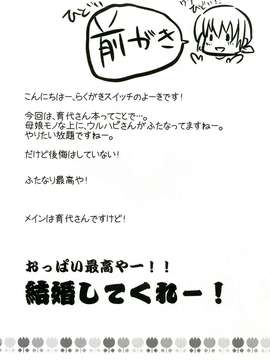 ひどい゛
ひどい!
前がき
こんにちはー、らくがきスイッチのよーきです！
今回は、育代さん本ってことで…。
母娘モノな上に、ウルハピさんがふたなってますねー。
やりたい放題ですねー。
だけど後悔はしていない！
ふたなり最高や！
メインは育代さんですけど！
おっぱい最高やー！！
結婚してくれー！